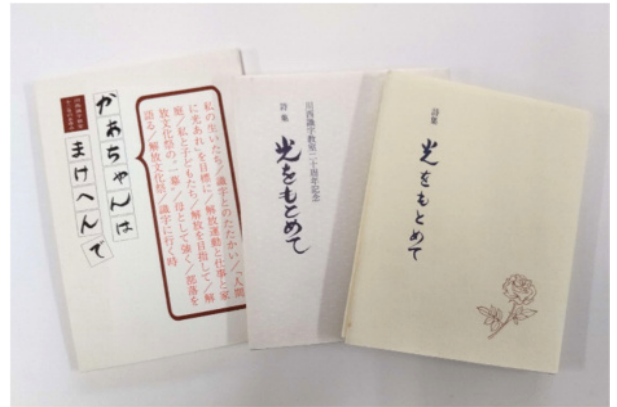 かあちゃんは
まけへんで
私の生いたち/識字とのたたかい/「人間
に光あれ」を目標に/解放運動と仕事と家
庭/私と子どもたち/解放を目指して/解
放文化祭の“一幕”/母として強く/部落を
語る/解放文化祭/識字に行く時
川西識字教室二十周年記念
詩集
光をもとめて
詩集
光をもとめて